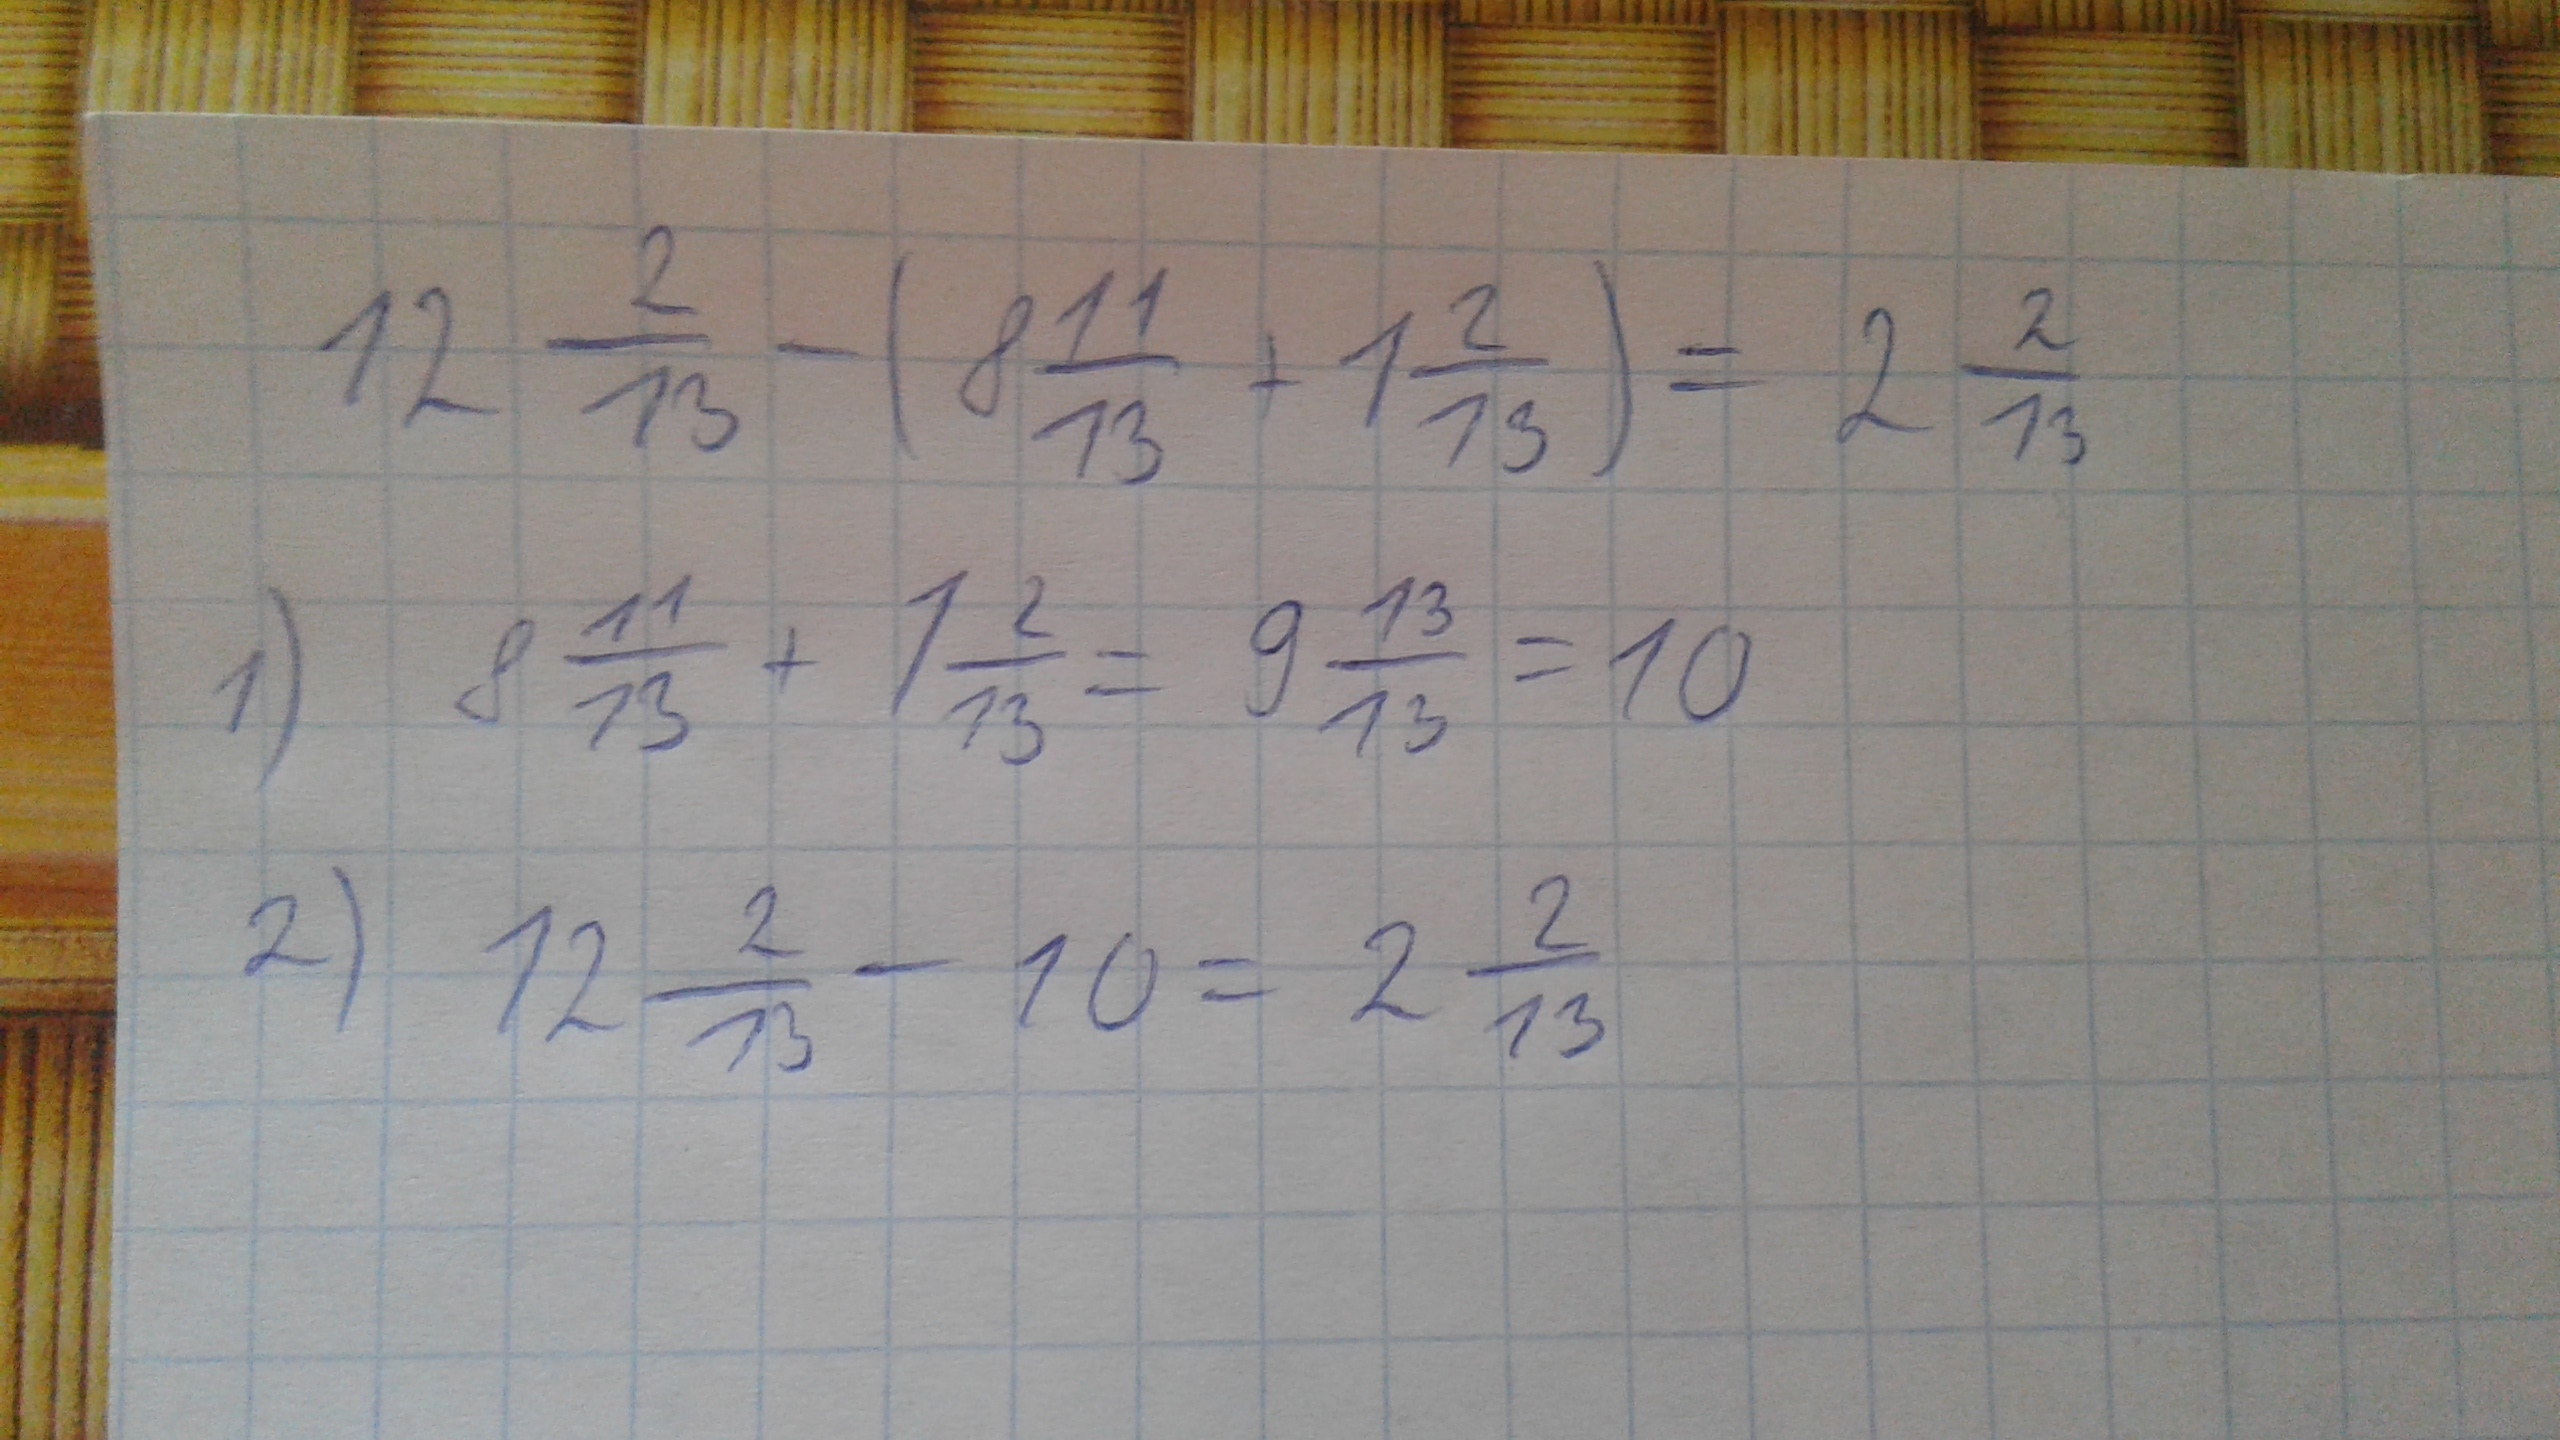 12 2/13 - (8 11/13 + 1 2/13) = 2 2/13
1) 8 11/13 + 1 2/13 = 9 13/13 = 10
2) 12 2/13 - 10 = 2 2/13